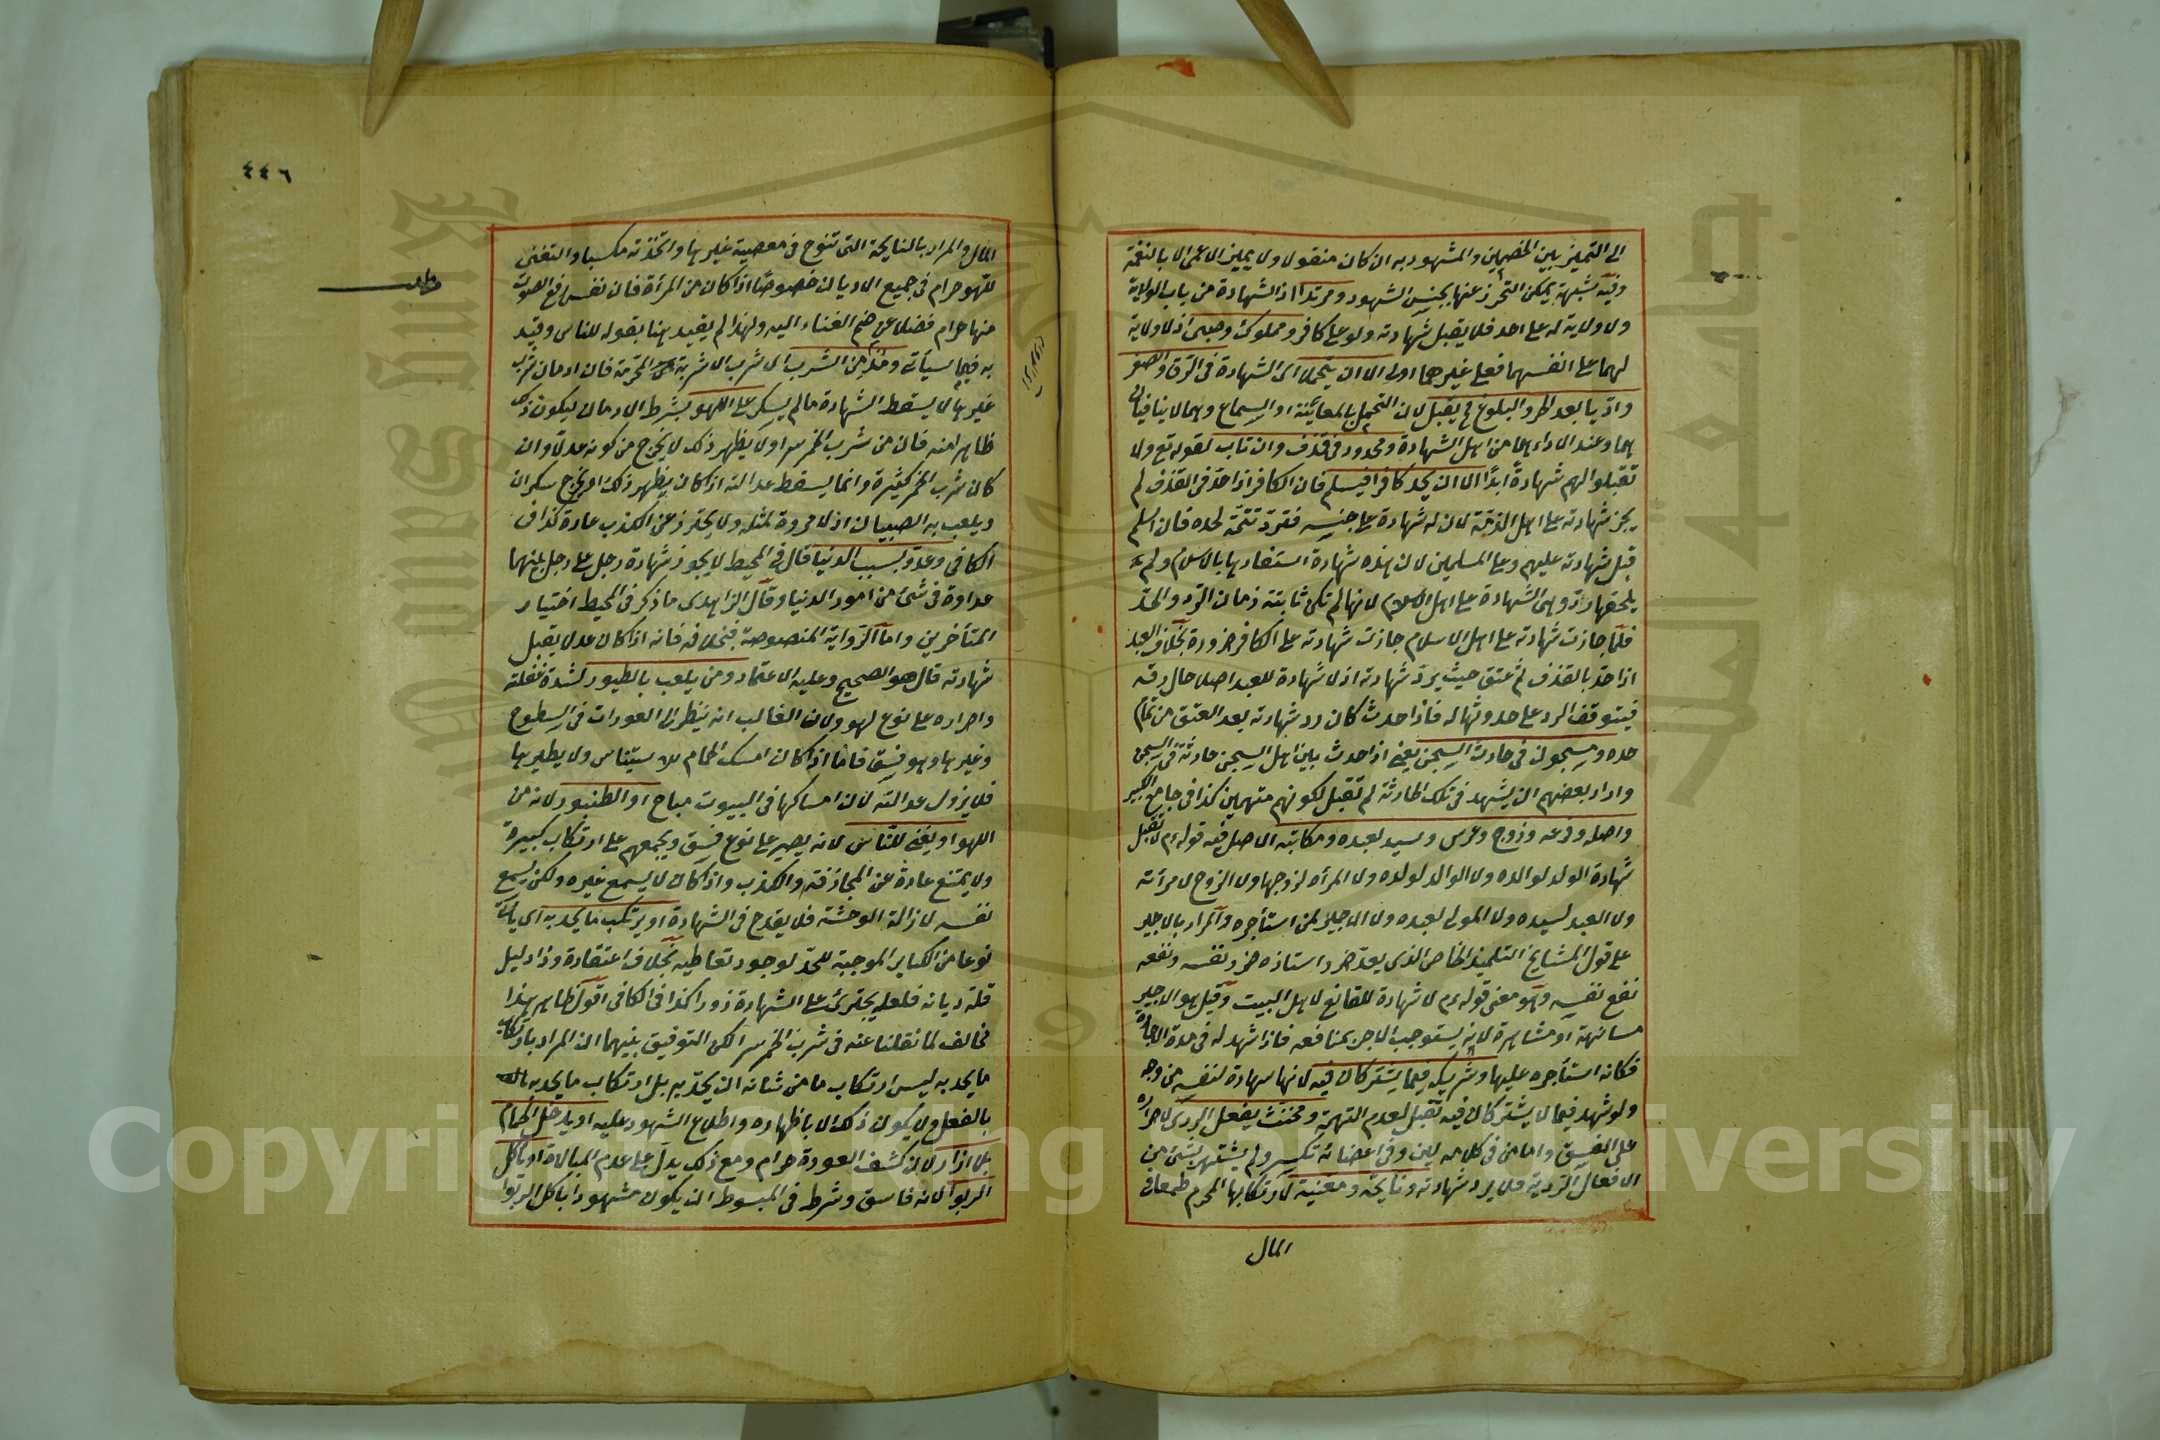 الى التمييز بين الخصمين والمشهود به ان كان منقولا ولا يميز الاعمى الا بالنغمة
وفيه شبهة يمكن التحرز عنها بجنس الشهود ومرتد اذ الشهادة من باب الولاية
ولا ولاية له على احد فلا يقبل شهادته ولو على كافر ومملوك وصبى اذ لا ولاية
لهما على انفسهما فعلى غيرهما اولى الا ان يتحملا اى الشهادة فى الرق والصغر
واديا بعد الحرية والبلوغ فح يقبل لان التحمل بالمعاينة او السماع وهما لا ينافيان
بهما وعند الاداء هما من اهل الشهادة ومحدود فى قذف وان تاب لقوله تع ولا
تقبلوا لهم شهادة ابدا الا ان يحد كافرا فيسلم فان الكافر اذا حد فى القذف لم
يجز شهادته على اهل الذمة لان له شهادة على جنسه فترد تتمة لحده فان اسلم
قبل شهادته عليهم وعلى المسلمين لان هذه شهادة استفادها بالاسلام ولم
يلحقها رد وهى الشهادة على اهل الاسلام لانها لم تكن ثابتة زمان الرد والحد
فلما جازت شهادته على اهل الاسلام جازت شهادته على الكافر ضرورة بخلاف العبد
اذا حد بالقذف ثم عتق حيث يرد شهادته اذ لا شهادة للعبد اصلا حال رقه
فيتوقف الرد على حدوثها له فاذا حدث كان رد شهادته بعد العتق من تمام
حده ومسجون فى حادث السجن يعنى اذا حدث بين اهل السجن حادثة فى السجن
واراد بعضهم ان يشهد فى تلك الحادثة لم تقبل لكونهم متهمين كذا فى جامع الكبير
واصله وفرعه وزوج وعرس وسيد لعبده ومكاتبه الاصل فيه قوله عم لا تقبل
شهادة الولد لوالده ولا الوالد لولده ولا المرأة لزوجها ولا الزوج لامرأته
ولا العبد لسيده ولا المولى لعبده ولا الاجير لمن استأجره والمراد بالاجير
على قول المشايخ التلميذ الخاص الذى يعد ضرر استاذه ضرر نفسه ونفعه
نفع نفسه وهو معنى قوله عم لا شهادة للقانع لاهل البيت وقيل هو الاجير
مسانهة او مشاهرة لانه يستوجب الاجر بمنافعه فاذا شهد له فى مدة الاجارة
فكانه استأجره عليها وشريك فيما يشتركان فيه لانها شهادة لنفسه من وجه
ولو شهد فيما لا يشتركان فيه تقبل لعدم التهمة ومخنث يفعل الردى لاصراره
على الفسق واما من فى كلامه لين وفى اعضائه تكسر ولم يشتهر بشئ من
الافعال الردية فلا يرد شهادته ونايحة ومغنية لارتكابها المحرم طمعا فى
المال
٤٤٦
المال والمراد بالنايحة التى تنوح فى معصية غيرها واتخذته مكسبا والتغنى
للهو حرام فى جميع الاديان خصوصا اذا كان من المرأة فان نفس رفع الصوت
منها حرام فضلا عن ضم الغناء اليه ولهذا لم يقيد هنا بقوله للناس وقيد
به فيما سيأتى ومدمن الشرب اى شرب الاشربة المحرمة فان ادمان شرب
غيرها لا يسقط الشهادة ما لم يسكر على اللهو يشرط الادمان ليكون ذلك
ظاهرا منه فان من شرب الخمر سرا ولا يظهر ذلك لا يخرج من كونه عدلا وان
كان شرب الخمر كثيرة وانما يسقط عدالته اذا كان يظهر ذلك او يخرج سكران
ويلعب به الصبيان اذ لا مروة لمثله ولا يحترز عن الكذب عادة كذا فى
الكافى وعدو بسبب الدنيا قال فى المحيط لا يجوز شهادة رجل على رجل بينهما
عداوة فى شئ من امور الدنيا وقال الزاهدى ما ذكر فى المحيط اختيار
المتأخرين واما الرواية المنصوصة فبخلافه فانه اذا كان عدلا يقبل
شهادته قال هو الصحيح وعليه الاعتماد ومن يلعب بالطيور لشدة غفلته
واصراره على نوع لهو ولان الغالب انه ينظر الى العورات فى السطوح
وغيرها وهو فسق فاما اذا كان امسك الحمام للاستيناس ولا يطيرها
فلا يزول عدالته لان امساكها فى البيوت مباح او الطنبور لانه من
اللهو او يغنى للناس لانه يصير على نوع فسق ويجمعهم على ارتكاب كبيرة
ولا يمتنع عادة عن المجازفة والكذب واذا كان لا يسمع غيره ولكن يسمع
نفسه لازالة الوحشة فلا يقدح فى الشهادة او يرتكب ما يحد به اى يأتى
نوعا من الكباير الموجبة للحد لوجود تعاطيه بخلاف اعتقاده وذا دليل
قلة ديانه فلعله يجترئ على الشهادة زورا كذا فى الكافى اقول ظاهر هذا
مخالف لما نقلنا عنه فى شرب الخمر سرا لكن التوفيق بينهما ان المراد بارتكاب
ما يحد به ليس ارتكاب ما من شانه ان يحد به بل ارتكاب ما يحد به
بالفعل ولا يكون ذلك الا باظهاره واطلاع الشهود عليه او يدخل الحمام
بلا ازار لان كشف العورة حرام ومع ذلك يدل على عدم المبالاة او يأكل
الربوا لانه فاسق وشرط فى المبسوط ان يكون مشهورا باكل الربوا
Copyright © King Saud University